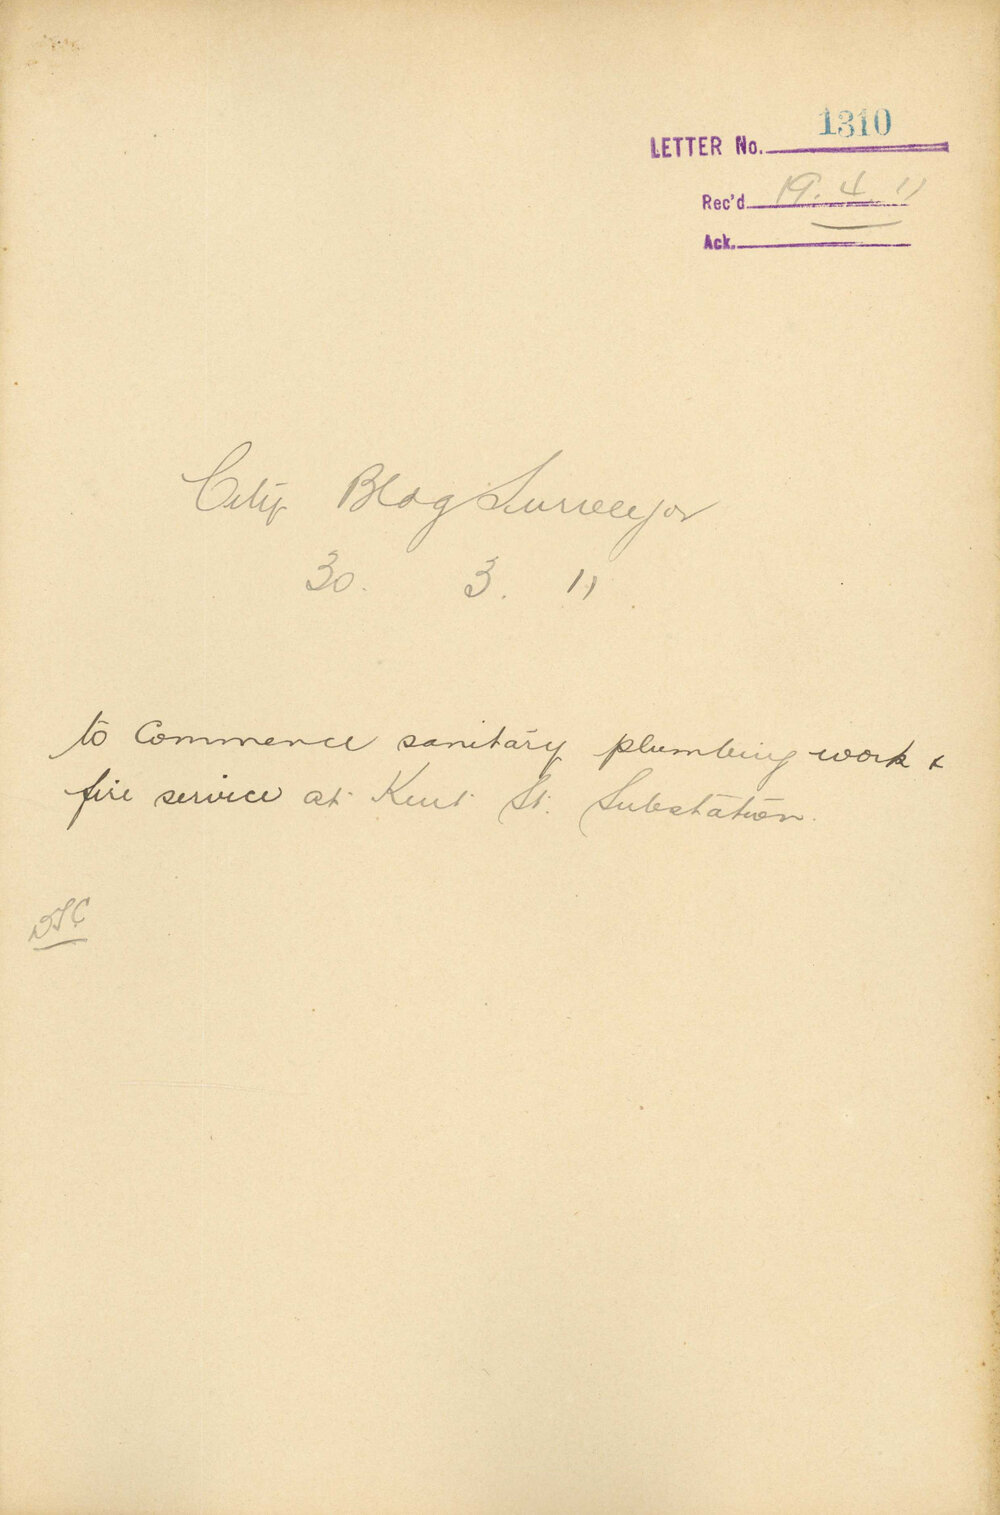 LETTER No. 1310
Rec'd 19.4.11
Ack.
City Bldg Surveyor
30. 3. 11
to Commence sanitary plumbing work &
fire service at Kent St. Substation.